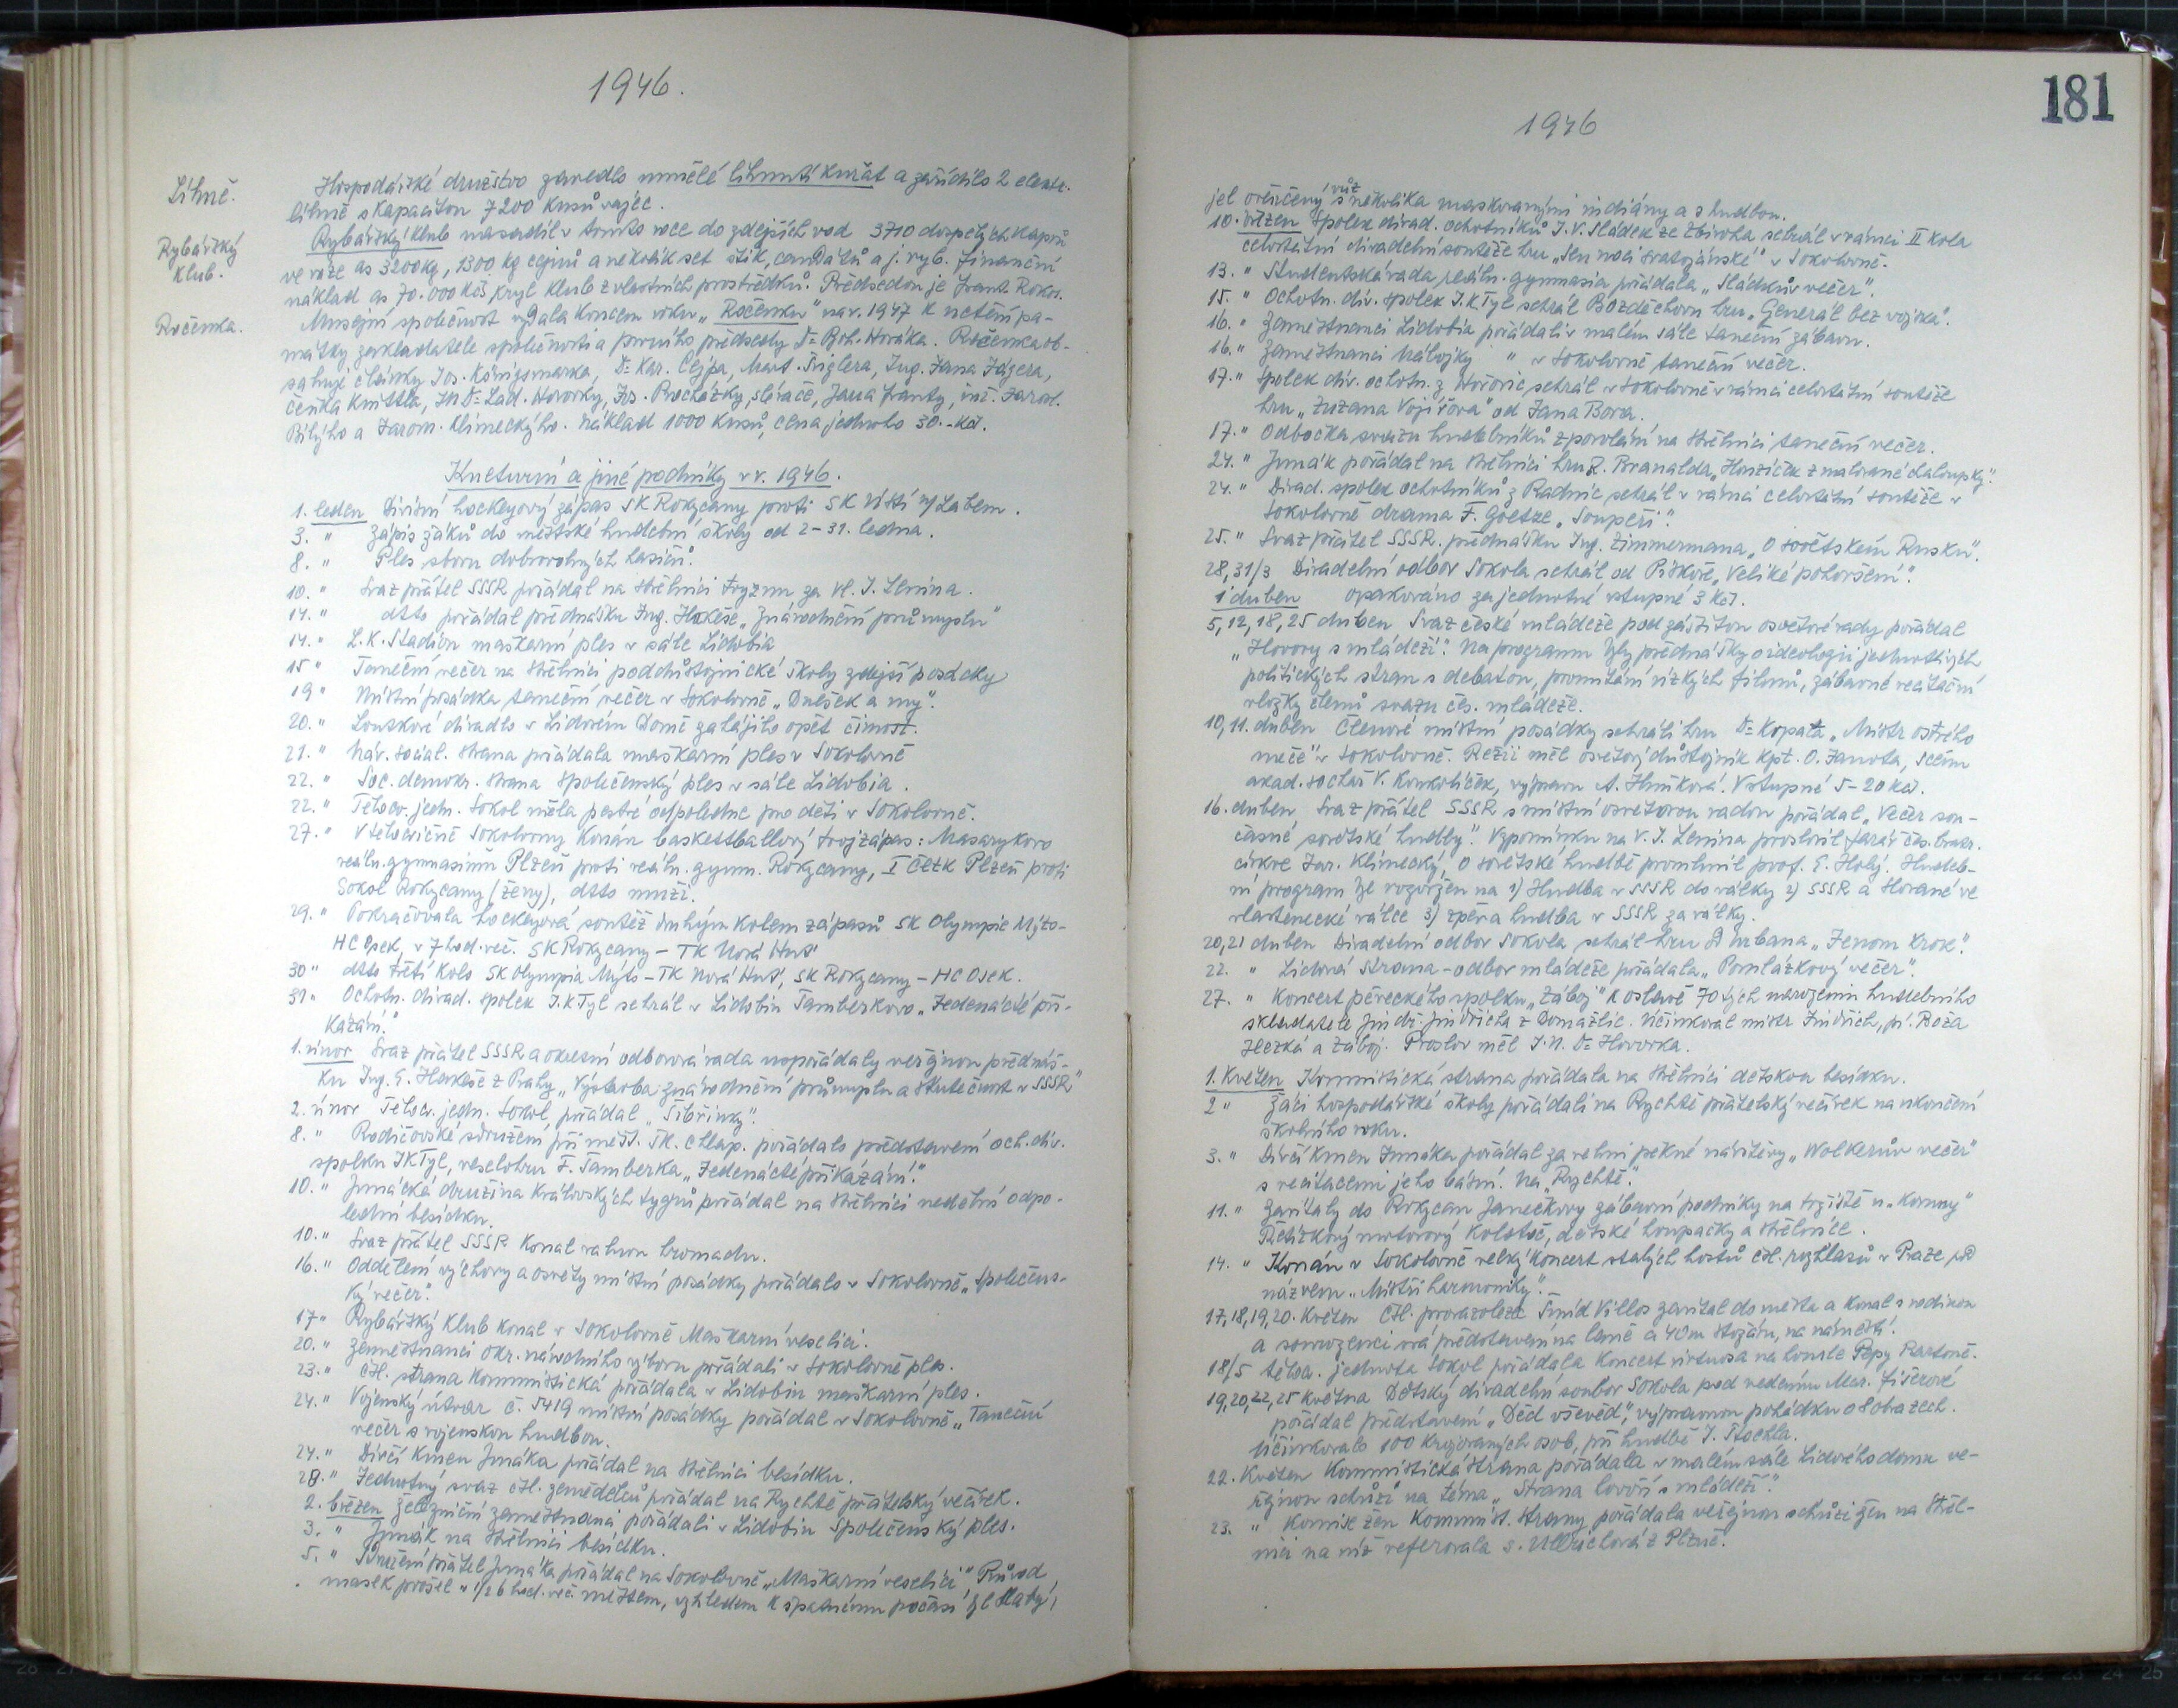 1946.
Líhně.
Hospodářské družstvo zavedlo umělé líhnutí kuřat a zařídilo 2 elektr.
líhně s kapacitou 7200 kusů vajec.
Rybářský
klub.
Rybářský klub nasadil v tomto roce do zdejších vod 3710 dospělých kaprů
ve váze as 3200 kg, 1300 kg cejnů a několik set štik, candátů a j. ryb. Finanční
náklad as 70.000 Kčs kryl klub z vlastních prostředků. Předsedou je Frant. Rokos.
Ročenka.
Musejní společnost vydala koncem roku „Ročenku" na r. 1947 k uctění pa-
mátky zakladatele společnosti a prvního předsedy Dr Boh. Horáka. Ročenka ob-
sahuje články Jos. Königsmarka, Dr Kar. Cejpa, Mart. Ziglera, Ing. Jana Jägera,
Čeňka Knittla, JUDr Lad. Hovorky, Jos. Procházky, slévače, Jana Franty, Jarosl.
Bílýho a Jarom. Klimeckýho. Náklad 1000 kusů, cena jednoho 30.- Kčs.
Kulturní a jiné podniky v r. 1946.
1. leden Divisní hockeyový zápas SK Rokycany proti SK Ústí n/Labem.
3. " Zápis žáků do městské hudební školy od 2-31. ledna.
8. " Ples sboru dobrovolných hasičů.
10. " Svaz přátel SSSR pořádal na Střelnici tryznu za Vl. I. Lenina.
14. " dtto pořádal přednášku Ing. Hakeše „Znárodnění průmyslu"
14. " L.K. Stadion maškarní ples v sále Lidobia
15 " Taneční večer na Střelnici poddůstojnické školy zdejší posádky
19 " Místní posádka taneční večer v Sokolovně „Dnešek a my".
20. " Loutkové divadlo v Lidovém Domě zahájilo opět činnost.
21. " Nár. social. strana pořádala maškarní ples v Sokolovně
22. " Soc. demokr. strana společenský ples v sále Lidobia.
22. " Tělocv. jedn. Sokol měla pestré odpoledne pro děti v Sokolovně.
27. " V tělocvičně Sokolovny konán basketballový trojzápas: Masarykovo
reáln. gymnasium Plzeň proti reáln. gymn. Rokycany, I ČLTK Plzeň proti
Sokol Rokycany (ženy), dtto muži.
29. " Pokračovala hockeyová soutěž druhým kolem zápasů SK Olympic Mýto-
HC Osek, v 7 hod. več. SK Rokycany - TK Nová Huť
30 " dtto třetí kolo SK Olympia Mýto - TK Nová Huť, SK Rokycany - HC Osek.
31 " Ochotn. divad. spolek J.K Tyl sehrál v Lidobiu Tamberkovo „Jedenácté při-
kázání."
1. únor Svaz přátel SSSR a okresní odborová rada uspořádaly veřejnou přednáš-
ku Ing. E. Hakeše z Prahy „Výstavba znárodnění průmyslu a skutečnost v SSSR"
2. únor Tělocv. jedn. Sokol, pořádal „Šibřinky".
8. " Rodičovské sdružení při měšť. šk. chlap. pořádalo představení och. div.
spolku JK Tyl, veselohru F. Tamberka „Jedenácté přikázání."
10. " Junácká družina Královských tygrů pořádal na Střelnici nedělní odpo-
lední besídku.
10. " Svaz přátel SSSR konal valnou hromadu.
16. " Oddělení výchovy a osvěty místní posádky pořádalo v Sokolovně „Společens-
ký večer".
17 " Rybářský klub konal v Sokolovně Maškarní veselici.
20. " Zaměstnanci okr. národního výboru pořádali v Sokolovně ples.
23. " Čsl. strana kommunistická pořádala v Lidobiu maškarní ples.
24. " Vojenský útvar č. 5419 místní posádky pořádal v Sokolovně „Taneční
večer s vojenskou hudbou.
24. " Dívčí kmen Junáka pořádal na Střelnici besídku.
28. " Jednotný svaz čsl. zemědělců pořádal na Rychtě přátelský večírek.
2. březen Železniční zaměstnanci pořádali v Lidobiu Společenský ples.
3. " Junák na Střelnici besídku.
5. " Sdružení přátel Junáka pořádal na Sokolovně „Maškarní veselici". Průvod
masek prošel v 1/2 6 hod. več. městem, vzhledem k špatnému počasí byl slabý,
181
1946
jel ověnčený vůz s několika maskovanými indiány a s hudbou.
10. březen Spolek divad. ochotníků J.V. Sládek ze Zbiroha sehrál v rámci II kola
celostátní divadelní soutěže hru „Sen noci svatojánské" v Sokolovně.
13. " Studentská rada reáln. gymnasia pořádala „Sládkův večer".
15. " Ochotn. div. spolek J.K Tyl sehrál Bozděchovu hru „Generál bez vojska".
16. " Zaměstnanci Lidobia pořádali v malém sále taneční zábavu.
16. " Zaměstnanci " v Sokolovně taneční večer.
17. " Spolek div. ochotn. z Hořovic sehrál v Sokolovně v rámci celostátní soutěže
hru „Zuzana Vojířova" od Jana Bora.
17. " Odbočka svazu hudebníků z povolání na Střelnici taneční večer.
24. " Junák pořádal na Střelnici hru R. Branalda „Honzíček z malované chaloupky".
24. " Divad. spolek ochotníků z Radnic sehrál v rámci celostátní soutěže v
Sokolovně drama F. Goetze „Soupeři".
25. " Svaz přátel SSSR. přednášku Ing. Zimmermana „O sovětském Rusku".
28, 31/3 Divadelní odbor Sokola sehrál od Piskoře „Veliké pohoršení".
1 duben opakováno za jednotné vstupné 3 Kčs.
5, 12, 18, 25 duben Svaz české mládeže pod záštitou osvětové rady pořádal
„Hovory s mládeží". Na programu byly přednášky o ideologii jednotlivých
politických stran s debatou, promítání úzkých filmů, zábavné recitační
vložky členů svazu čes. mládeže.
10, 11. duben Členové místní posádky sehráli hru Dr Kopta „Mistr ostrého
meče" v Sokolovně. Režii měl osvětový důstojník kpt. O. Janota, scénu
akad. sochař V. Konkolíček, výpravu A. Vstupné 5-20 Kčs.
16. duben Svaz přátel SSSR s místní osvětovou radou pořádal „Večer sou-
časné sovětské hudby". Vzpomínku na V. I. Lenina proslovil farář čes. bratr.
církve Jar. Klimecký, o sovětské hudbě promluvil prof. E. Holý. Hudeb-
ní program byl rozvržen na 1) Hudba v SSSR do války 2) SSSR a Slované ve
vlastenecké válce 3) zpěv a hudba v SSSR za války.
20, 21 duben Divadelní odbor Sokola sehrál hru A Urbana „Jenom krok".
22. " Lidová strana - odbor mládeže pořádala „Pomlázkový večer".
27. " Koncert pěveckého spolku „Záboj" k oslavě 70 tých narozenin hudebního
skladatele Jindř. Jindřicha z Domažlic. Účinkoval mistr Jindřich, pí. Boža
a Záboj. Proslov měl Dr Hovorka.
1. květen Kommunistická strana pořádala na Střelnici dětskou besídku.
2 " Žáci hospodářské školy pořádali na Rychtě přátelský večírek na ukončení
školního roku.
3. " Dívčí kmen Junáka pořádal za velmi pěkné návštěvy „Wolkerův večer"
s recitacemi jeho básní. Na „Rychtě".
11. " Zavítaly do Rokycan Janečkovy zábavní podniky na tržiště u „Koruny"
Řetízkový motorový kolotoč, dětské houpačky a střelnice.
14. " Konán v Sokolovně velký koncert stálých hostů čsl. rozhlasů v Praze pod
názvem „Mistři harmoniky".
17, 18, 19, 20. květen Čsl. provazolezec Šmíd Villos zavítal do města a konal s rodinou
a sourozenci svá představení na laně a 40m stožáru, na náměstí.
18/5 tělocv. jednota Sokol pořádala koncert virtuosa na housle Pepy Bartoně.
19, 20, 22, 25 května Dětský divadelní soubor Sokola pod vedením Mar. Fišerové
pořádal představení „Děd vševěd", výpravnou pohádku o 8 obrazech.
Účinkovalo 100 krojovaných osob, při hudbě J. Stochla.
22. květen Kommunistická strana pořádala v malém sále Lidového domu ve-
řejnou schůzi na téma „Strana hovoří s mládeží".
23. " Komise žen Kommunist. strany pořádala veřejnou schůzi žen na Střel-
nici na níž referovala s. Ullrichová z Plzně.